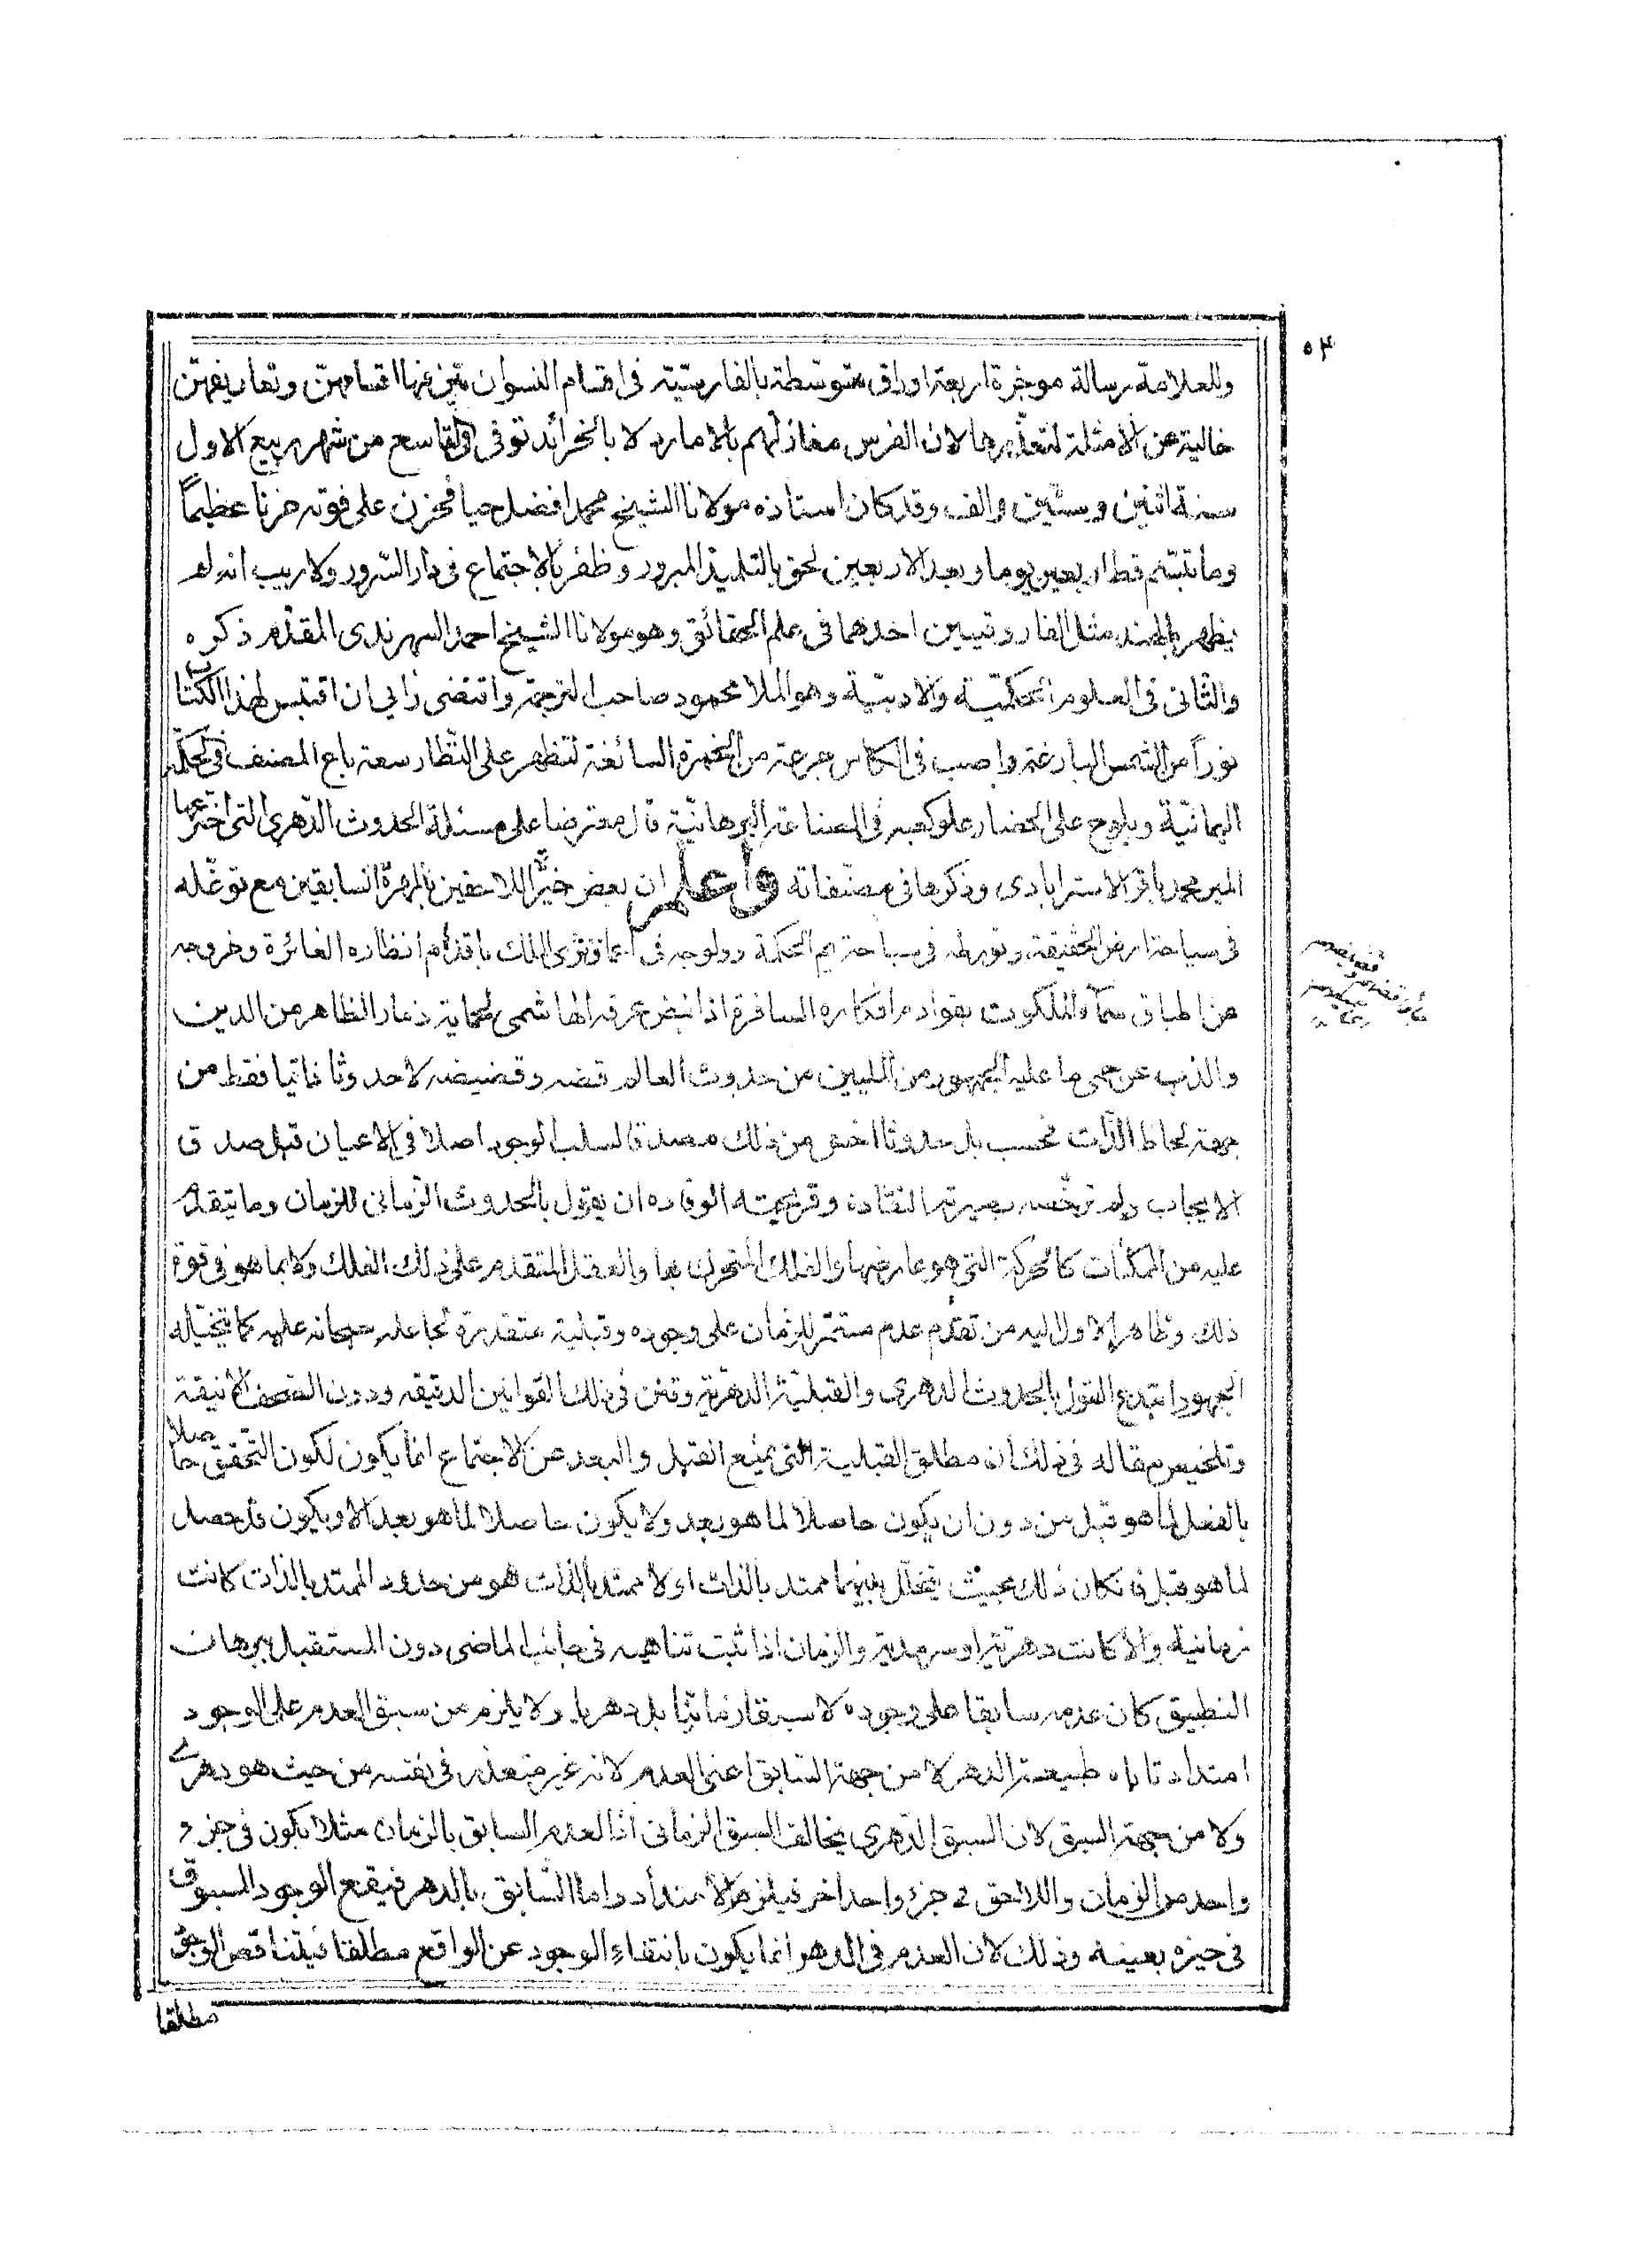 ٥٤
وللعلامة رسالة موجزة اربعة اوراق متوسطة بالفارسيّة فى اقسام النسوان بيّن فيها اقسامهنّ وتعاريفهنّ
خالية عن الامثلة لتعذّرها لان الفرس مغازلتهم بالامارد لا بالخرائد توفى التاسع من شهر ربيع الاول
سنة اثنين وستّين والف وقد كان استاذه مولانا الشيخ محمد افضل حيا فحزن على فوته حزنا عظيماً
وما تبسّم قط اربعين يوما وبعد الاربعين لحق بالتلميذ المبرور وظفر بالاجتماع فى دار السّرور ولا ريب انه لم
يظهر بالهند مثل الفاروقيين احدهما فى علم الحقائق وهو مولانا الشيخ احمد السهرندى المقدّم ذكره
والثانى فى العلوم الحكميّة والادبيّة وهو الملا محمود صاحب الترجمة واقتضى رأيى ان اقتبس لهذا الكتاب
نوراً من الشمس البازغة واصب فى الكاس جرعة من الخمرة السائغة لتظهر على النظّار سعة باع المصنف فى الحكمة
اليمانيّة ويلوح على الحضار علو كعبه فى الصناعة البرهانيّة قال معترضا على مسئلة الحدوث الدّهرى التى اخترعها
المير محمد باقر الاسترابادى وذكرها فى مصنّفاته واعلم ان بعض خيرة اللاحقين بالمهرة السابقين مع توغّله
فى سياحة ارض الحقيقة وتورطه فى سباحة يم الحكمة وولوجه فى اعماق ثرى الملك باقدام انظاره الغائرة وخروجه
من اطباق سماء الملكوت بقوادم افكاره السافرة اذا نبض عرقه الهاشمى لحماية ذمار الظاهر من الدين
والذب عن حمى ما عليه الجمهور من المليين من حدوث العالم قضه وقضيضه لا حدوثا ذاتيا فقط من
جهة لحاظ الذّات فحسب بل حدوثا اخص من ذلك مصداقا لسلب الوجود اصلا فى الاعيان قبل صدق
الايجاب ولم ترخّصه بصيرته النقّادة وقريحته الوقادة ان يقول بالحدوث الزّمانى للزمان وما يتقدّم
عليه من الممكنات كالحركة التى هو عارضها والفلك المتحرك بها والعقل المتقدم على ذلك الفلك ولا بما هو فى قوة
ذلك وظاهر الاول اليه من تقدّم عدم مستمر للزمان على وجوده وقبلية متقدرة لجاعله سبحانه عليه كما يتخيّله
الجمهور ابتدع القول بالحدوث الدهرى والقبليّة الدهريّة وقنن فى ذلك القوانين الدقيقه ودون الصحف الانيقة
وتلخيص مقاله فى ذلك ان مطلق القبلية التى يمنع القبل والبعد عن الاجتماع انما يكون لكون التحقق حاصلا
بالفعل لما هو قبل من دون ان يكون حاصلا لما هو بعد ولا يكون حاصلا لما هو بعد الا ويكون قد حصل
لما هو قبل فى نكان ذلك بحيث يتخلل بينهما ممتد بالذات او لا ممتد بالذات هو من حدود الممتد بالذات كانت
زمانية والا كانت دهريّة او سرمدية والزمان اذا ثبت تناهيه فى جانب الماضى دون المستقبل ببرهان
التطبيق كان عدمه سابقا على وجوده لا سبقا زمانيّا بل دهريا ولا يلزم من سبق العدم على الوجود
امتداد تاباه طبيعة الدهر لا من جهة السّابق اعنى العدم لانه غير متعذر فى نفسه من حيث هو دهرى
ولا من جهة السبق لان السبق الدّهرى يخالف السبق الزمانى اذ العدم السابق بالزمان مثلا يكون فى جزء
واحد من الزمان واللاحق فى جزء واحد اخر فيلزم الامتداد واما السّابق بالدهر فيقع الوجود المسبوق
فى حيزه بعينه وذلك لان العدم فى الدهر انما يكون بانتفاء الوجود عن الواقع مطلقا فيناقض الوجود
مطلقا